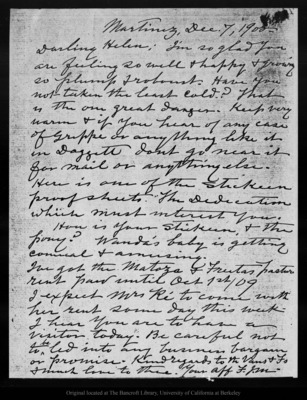 Martinez, Dec. 7, 1908.
Darling Helen: I'm so glad you
are feeling so well & happy & growing
so plump & robust. Have you
not taken the least cold? That
is the one great danger. Keep very
warm & if you hear of any case
of Grippe or anything like it
in Daggett dont go near it
for mail or anything else.
Here is one of the Stickeen
proof sheets. The Dedication
which must interest you.
How is your Stickeen, & the
pony? Wanda's baby is getting
comical & amusing.
I've got the Matoza & Freitas pasture
rent paid until Oct 1st/09
I expect Mrs Re to come with
her rent some day this week
I hear you are to have a
visitor today. Be careful not
to be led into any business bargain
or promise. Kind regards to the Vans &
& much love to thee. Your aff. J.M.
Original located at The Bancroft Library, University of California at Berkeley